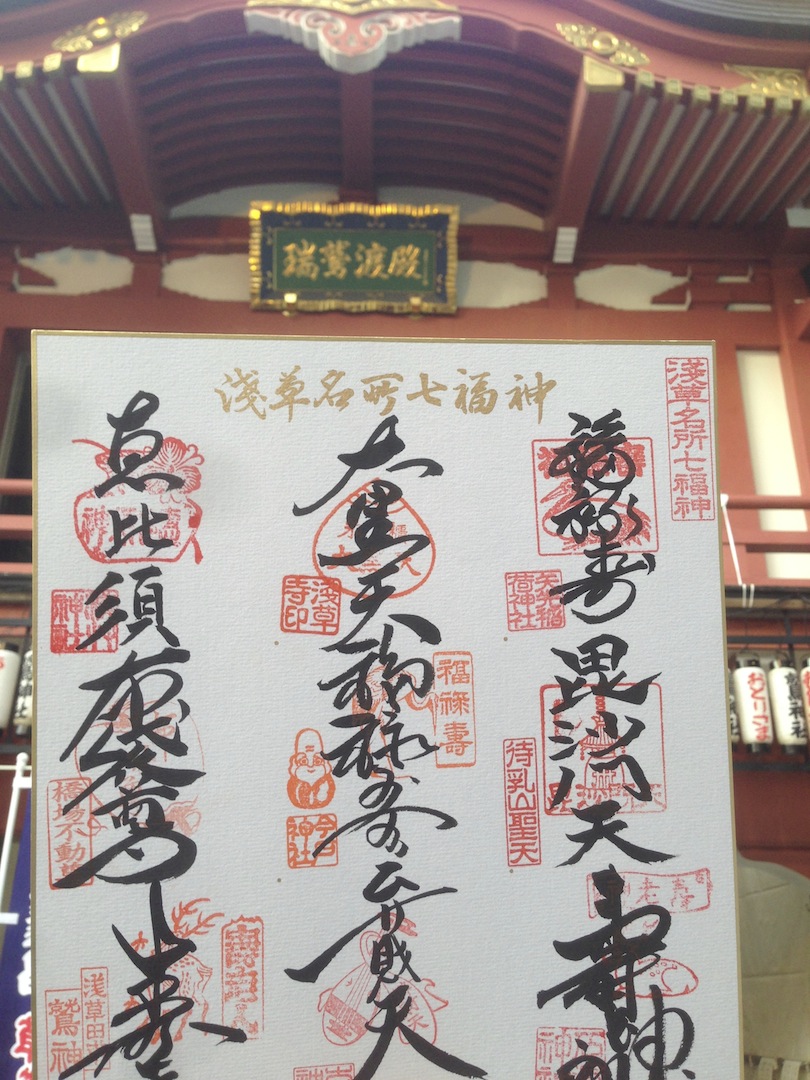 瑞鷲渡殿
淺草名所七福神
淺草名所七福神
福禄寿
矢先稲荷神社
毘沙門天
待乳山聖天
寿老神
大黒天
淺草寺印
福禄寿
福禄壽
今戸神社
弁財天
恵比須
神社
布袋尊
橋場不動尊
寿老
浅草田
鷲神
おとりさま
鷲神社